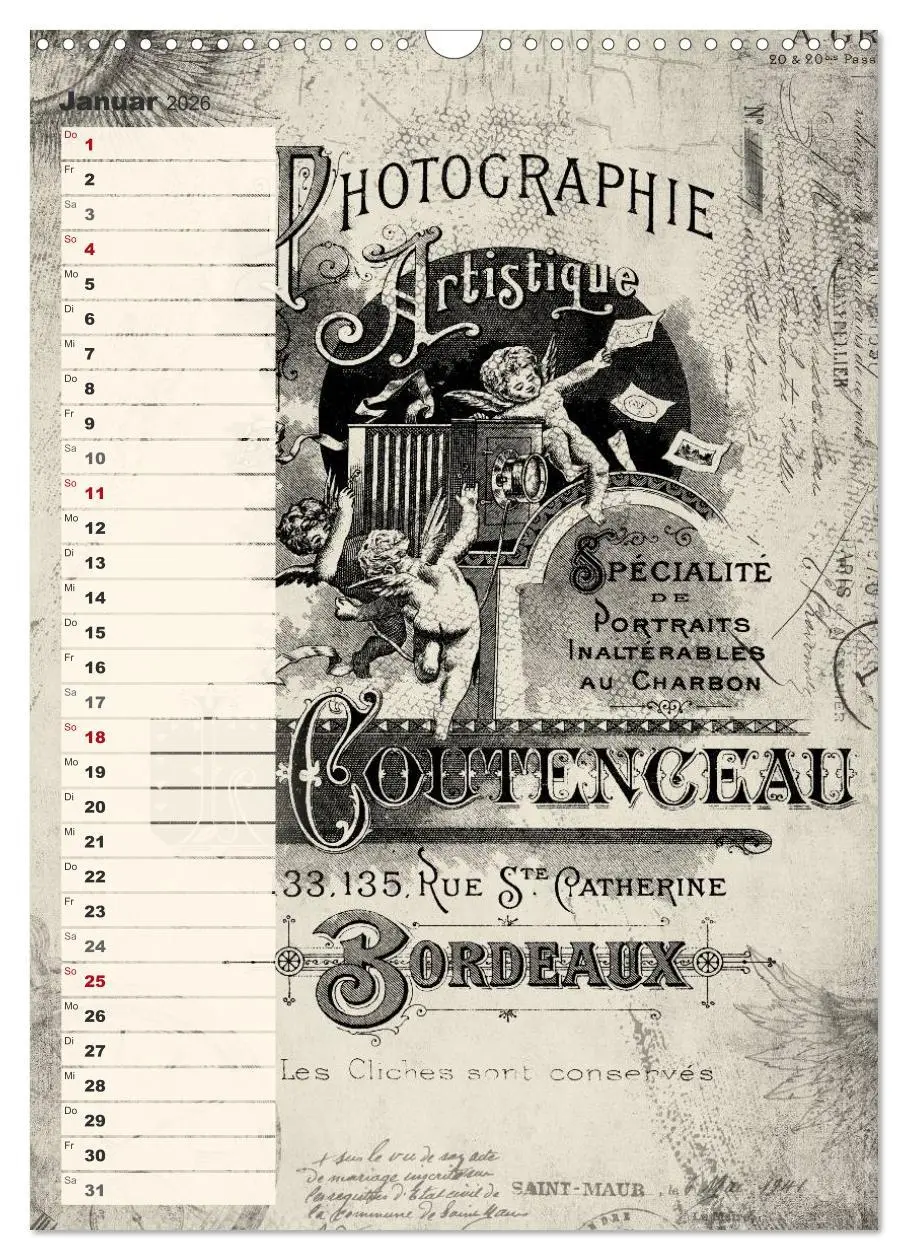 20 & 20bis Pass
Januar 2026
Do 1
Fr 2
Sa 3
So 4
Mo 5
Di 6
Mi 7
Do 8
Fr 9
Sa 10
So 11
Mo 12
Di 13
Mi 14
Do 15
Fr 16
Sa 17
So 18
Mo 19
Di 20
Mi 21
Do 22
Fr 23
Sa 24
So 25
Mo 26
Di 27
Mi 28
Do 29
Fr 30
Sa 31
Nº
PHOTOGRAPHIE
Artistique
SPÉCIALITÉ
DE
PORTRAITS
INALTÉRABLES
AU CHARBON
COUTENCEAU
33,135, RUE STE CATHERINE
BORDEAUX
Les Cliches sont conservés
de mariage
les registres d'Etat civil de
la commune de Saint Maur
SAINT-MAUR, le
1941
PARIS